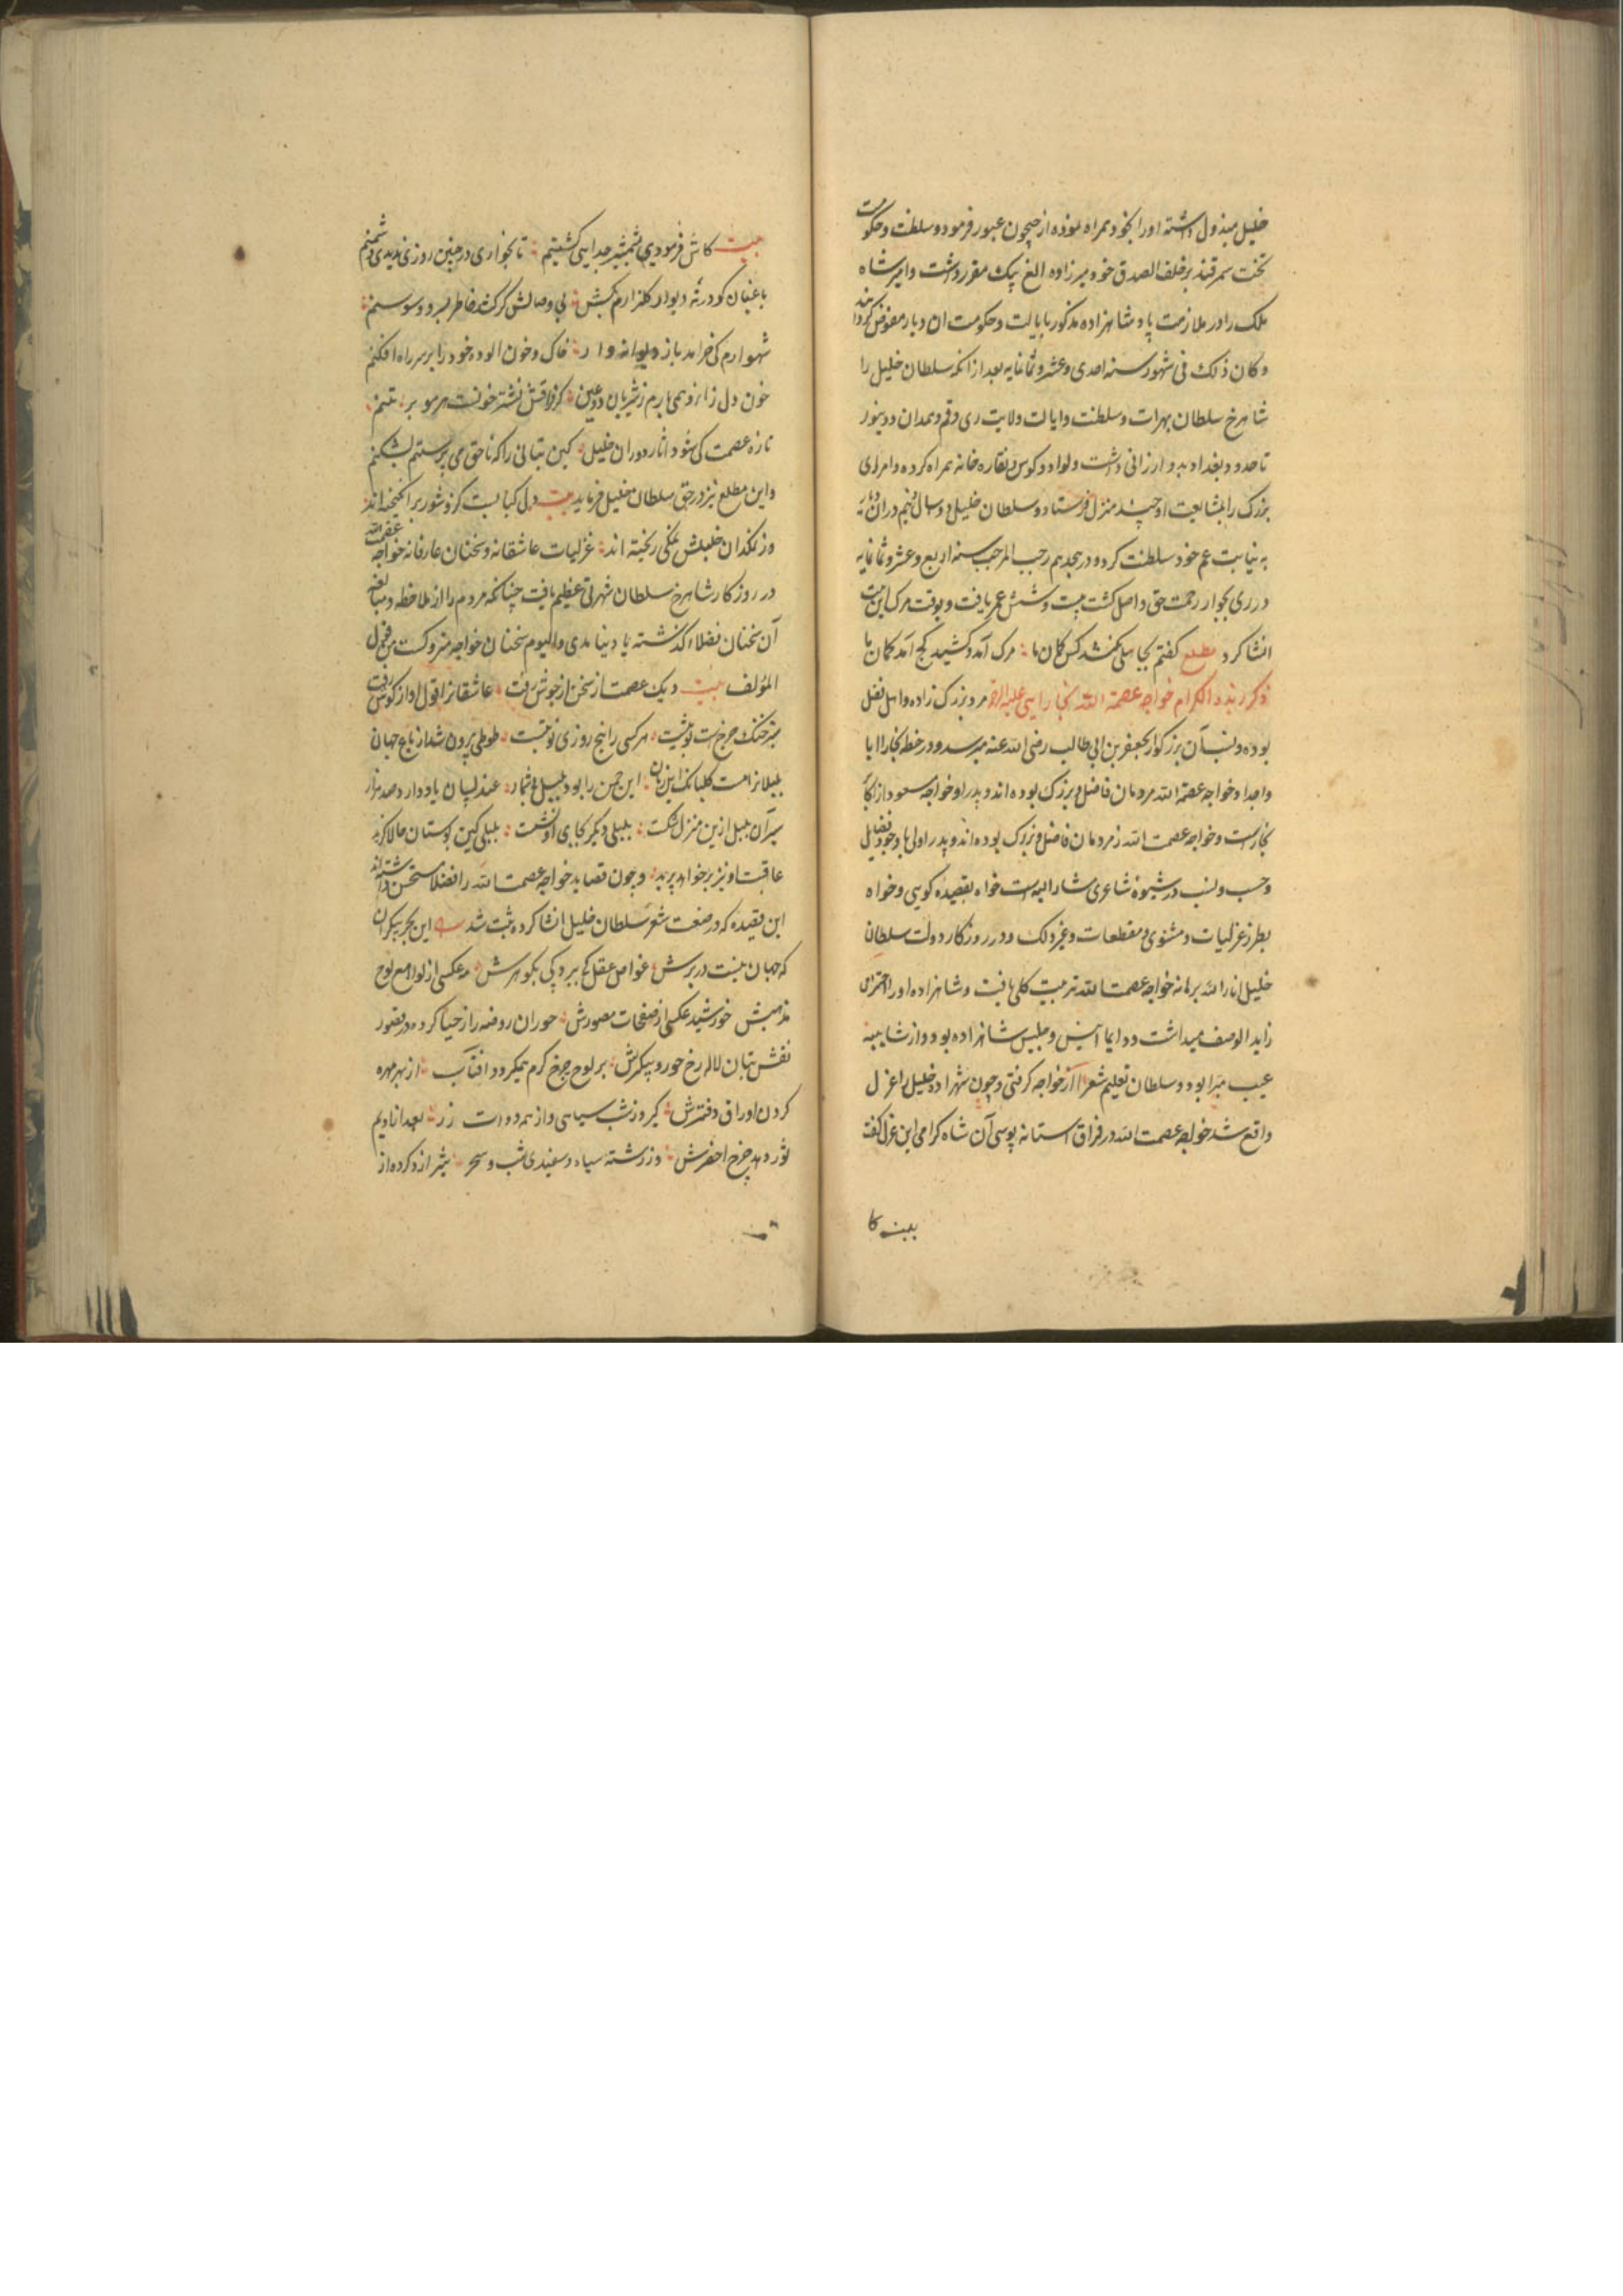 خلیل مبذول داشته اورا بخود همراه نموده از جیحون عبور فرمود و سلطنت و حکومت
تخت سمرقند بر خلف الصدق خود میرزاده الغ بیک مقرر داشت و امیر شاه
ملک را در ملازمت پادشاهزاده مذکور بایالت و حکومت ان دیار مفوض کردند
و کان ذلک فی شهور سنه احدی و عشر و ثمانمایه بعد از انکه سلطان خلیل را
شاهرخ سلطان بهرات و سلطنت و ایالت ولایت ری و قم و همدان و دینور
تا حدود بغداد بدو ارزانی داشت ولوا و کوس و نقاره خانه همراه کرده و امرای
بزرک را بمشایعت او چند منزل فرستاد و سلطان خلیل دو سال و نیم در ان دیار
به نیابت عم خود سلطنت کرد و در هجدهم رجب المرجب سنه اربع و عشر و ثمانمایه
در ری بجوار رحمت حق واصل کشت بیست و شش عمر یافت و بوقت مرک این بیت
انشا کرد مطلع کفتم بجا سلی نکشد کس کمان ما مرک آمد و کشید کج آمد کمان ما
ذکر زبدة الکرام خواجه عصمة الله بخارایی علیه الرحمه مرد بزرک زاده و اهل فضل
بوده و نسب آن بزرکوار بجعفر بن ابی طالب رضی الله عنه میرسد و در خطه بخارا ابا
واجداد خواجه عصمة الله مردمان فاضل و بزرک بوده اند و پدر او خواجه مسعود از اکابر
بخارست و خواجه عصمت الله ز مردمان فاضل و بزرک بوده اند و پدر اولی با وجود فضایل
و حسب و نسب در شیوه شاعری مشار الیه است خواه بقصیده کویی و خواه
بطرز غزلیات و مثنوی و مقطعات و غیر ذلک و در روزکار دولت سلطان
خلیل انار الله برهانه خواجه عصمت الله تربیت کلی یافت و شاهزاده اورا احترامی
زاید الوصف میداشت و دایما انیس و جلیس شاهزاده بود و از شایبه
عیب مبرا بود و سلطان تعلیم شعر از خواجه کرفتی و چون شهزاده خلیل را عزل
واقع شد خواجه عصمت الله در فراق استانه بوسی آن شاه کرامی این غزل کفت
بیت کا
بیت کاش فرمودی بشمشیر جدایی کشتنم تا بخواری در چنین روزی ندیدی دشمنم
باغبان کو در ته دیوار کلزارم بکش بی وصالش کر کشد خاطر بسرو و سوسنم
شهسوارم کی خرامد باز دیوانه وار خاک و خون الوده خود را بر سر راه افکنم
خون دل زانرو همی بارم ز شریان دو عین کز فراقش نشتر خونست هر مو بر تنم
تازه عصمت کی شود اثار دوران خلیل کین بتانی را که ناحق می پرستم بشکنم
و این مطلع نیز در حق سلطان خلیل فرماید بیت دل کبابیست کزو شور بر انکیخته اند
وز نمکدان خلیلش نمکی ریخته اند غزلیات عاشقانه و سخنان عارفانه خواجه عصمت الله
در روزکار شاهرخ سلطان شهرتی عظیم یافت چنانکه مردم را از ملاحظه و مبالغه
آن سخنان فضلاء کذشته یاد نیامدی و الیوم سخنان خواجه متروکست من قول
المؤلف بیت دیک عصمت از سخن از جوش رفت عاشقانرا قول او از کوش رفت
سبز خنک چرخ بنوبتست هر کسی را پنج روزی نوبتست طوطی بیرون شد از باغ جهان
بلبلانراست کلبانک این زمان این چمن را بود بلبل بیشمار عندلیبان یاد دارد صد هزار
سیر آن بلبل ازین منزل کذشت بلبلی دیکر بجای او نشست بلبلی کین بوستان حالا کزید
عاقبت او نیز بر خواهد پرید و چون قصاید خواجه عصمت الله را فضلا مستحسن داشته اند
این قصیده که در صنعت شعر سلطان خلیل انشا کرده ثبت شد این بحر بیکران
که جهان نیست در برش غواص عقل کی ببرد پی بکوهرش مه عکسی از لوامع لوح
مذهبش خورشید عکسی از صفحات مصورش حوران روضه را ز حیا کرده در قصور
نقش بتان لاله رخ حور پیکرش بر لوح چرخ کرم همیکردد افتاب از بهر مهره
کردن اوراق دفترش کیرد ز شب سیاهی و از مه دوات زر بعد از ادیم
ثور دهد چرخ اخضرش وز رشته سیاه و سفیدی شب و سحر شیرازه کرده از